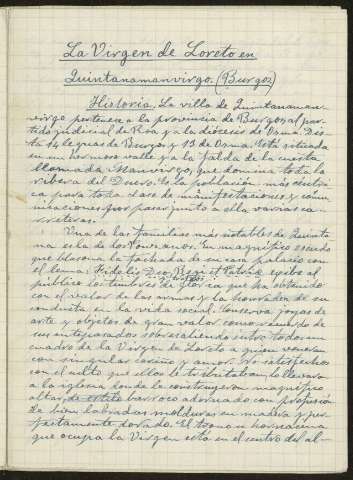 La Virgen de Loreto en
Quintanamanvirgo. (Burgos)
Historia. La villa de Quintanaman-
virgo pertenece a la provincia de Burgos, al par-
tido judicial de Roa y a la diócesis de Osma. Dis-
ta 14 leguas de Burgos y 13 de Osma. Está situada
en un hermoso valle y a la falda de la cuesta
llamada Manvirgo, que domina toda la
ribera del Duero. Es la población más céntri-
ca para toda clase de manifestaciones y comu-
nicaciones por pasar junto a ella varias ca-
rreteras.
Una de las familias más notables de Quinta-
na es la de los
Un magnífico escudo
que blasona la fachada de su casa palacio con
el lema: Fidelis Deo, Regi et Patriae
al
público los timbres de gloria que ha obtenido
con el valor de las armas y la honradez de su
conducta en la vida social. Conserva joyas de
arte y objetos de gran valor como recuerdo de
sus antepasados sobresaliendo entre todos un
cuadro de la Virgen de Loreto a quien veneran
con singular cariño y amor. No satisfechos
con el culto que ellos le tributaban lo llevaron
a la iglesia donde la construyeron magnífico
altar, de estilo barroco adornado con profusión
de bien labradas molduras en madera y per-
fectamente dorado. El trono u hornacina
que ocupa la Virgen está en el centro del al-